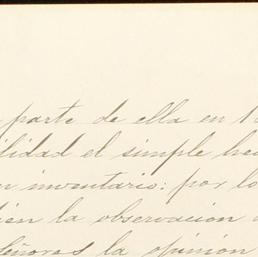 parte de ella en
ilidad el simple
inventario: por lo
la observacion
la opinión